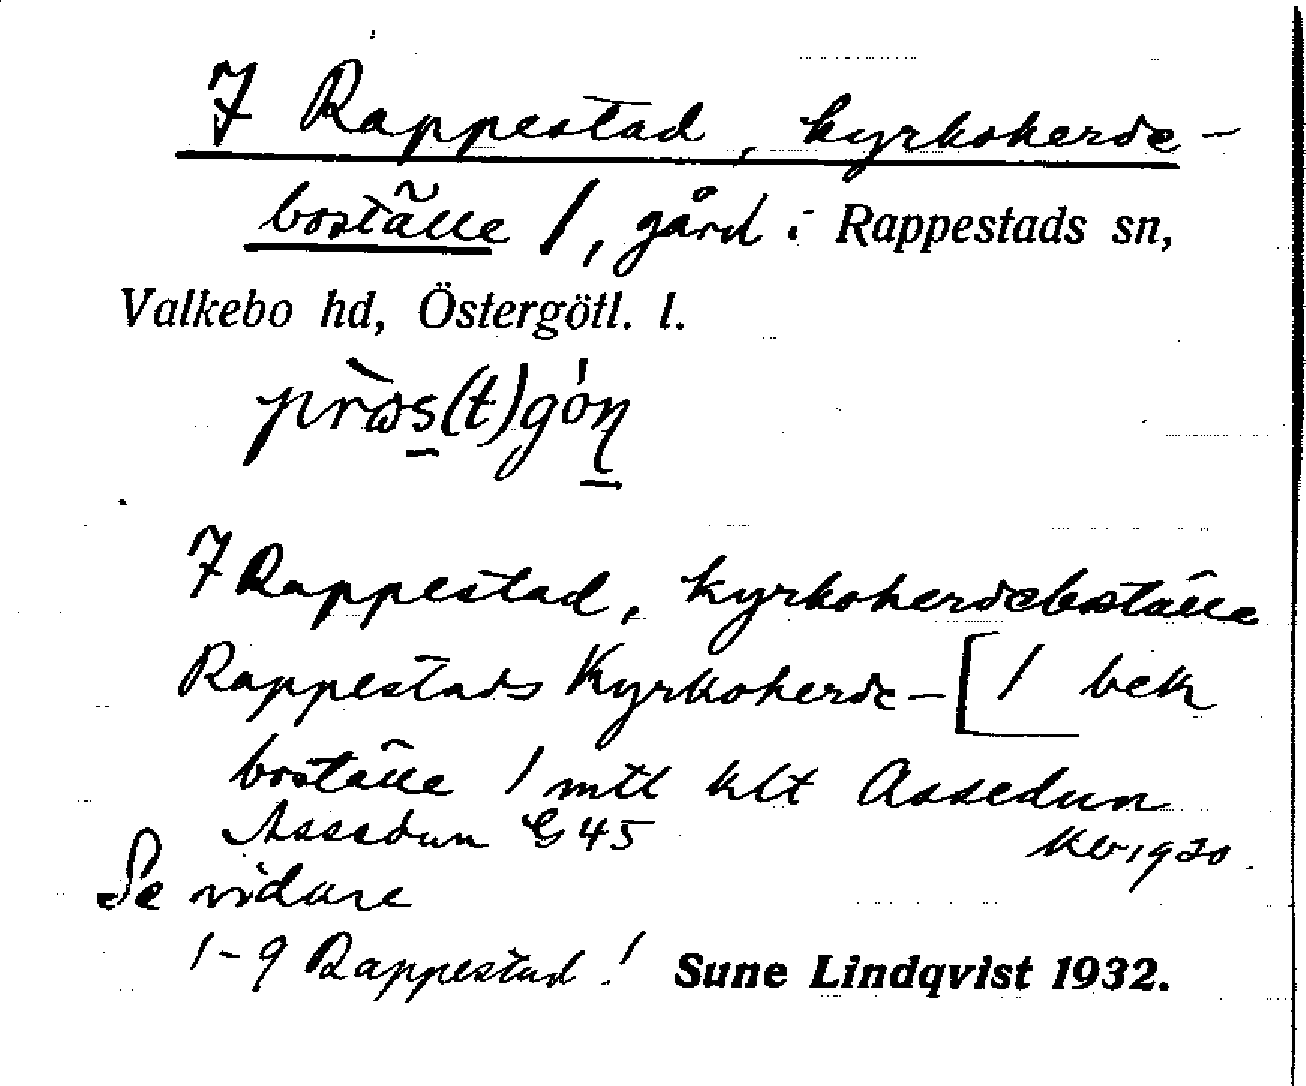 7 Rappestad, kyrkoherde-
boställe 1, gård i Rappestads sn,
Valkebo hd, Östergötl. l.
präs(t)gón
7 Rappestad, kyrkoherdeboställe
Rappestads Kyrkoherde- [1 bek
boställe 1 mtl klt Assedun
Assedun G45 kb 1920.
Se vidare
1-9 Rappestad! Sune Lindqvist 1932.